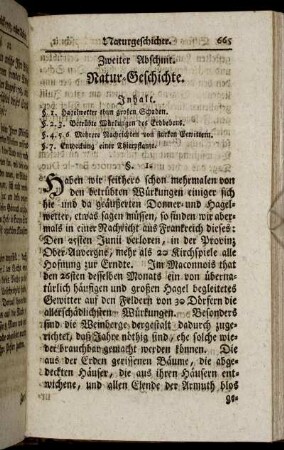 Naturgeschichte. 665
Zweiter Abschnit.
Natur-Geschichte.
Inhalt.
§. 1. Hagelwetter thun großen Schaden.
§. 2. 3. Betrübte Würkungen des Erdbebens.
§. 4. 5. 6 Mehrere Nachrichten von starken Gewittern.
§. 7. Entdeckung einer Thierpflanze.
§. 1.
Haben wie seithero schon mehrmalen von
den betrübten Würkungen einiger sich
hie und da geäußerten Donner- und Hagel-
wetter, etwas sagen müssen, so finden wir aber-
mals in einer Nachricht aus Frankreich dieses:
Den 25sten Junii verloren, in der Provinz
Ober-Auvergne, mehr als 20 Kirchspiele alle
Hofnung zur Erndte. Im Maconnois that
den 26sten desselben Monats ein von überna-
türlich häufigen und großen Hagel begleitetes
Gewitter auf den Feldern von 30 Dörfern die
allerschädlichsten Würkungen. Besonders
sind die Weinberge dergestalt dadurch zuge-
richtet, daß Jahre nöthig sind, ehe solche wie-
der brauchbar gemacht werden können. Die
aus der Erden gerissenen Bäume, die abge-
deckten Häuser, die aus ihren Häusern ent-
wichene, und allen Elende der Armuth blos
ge-